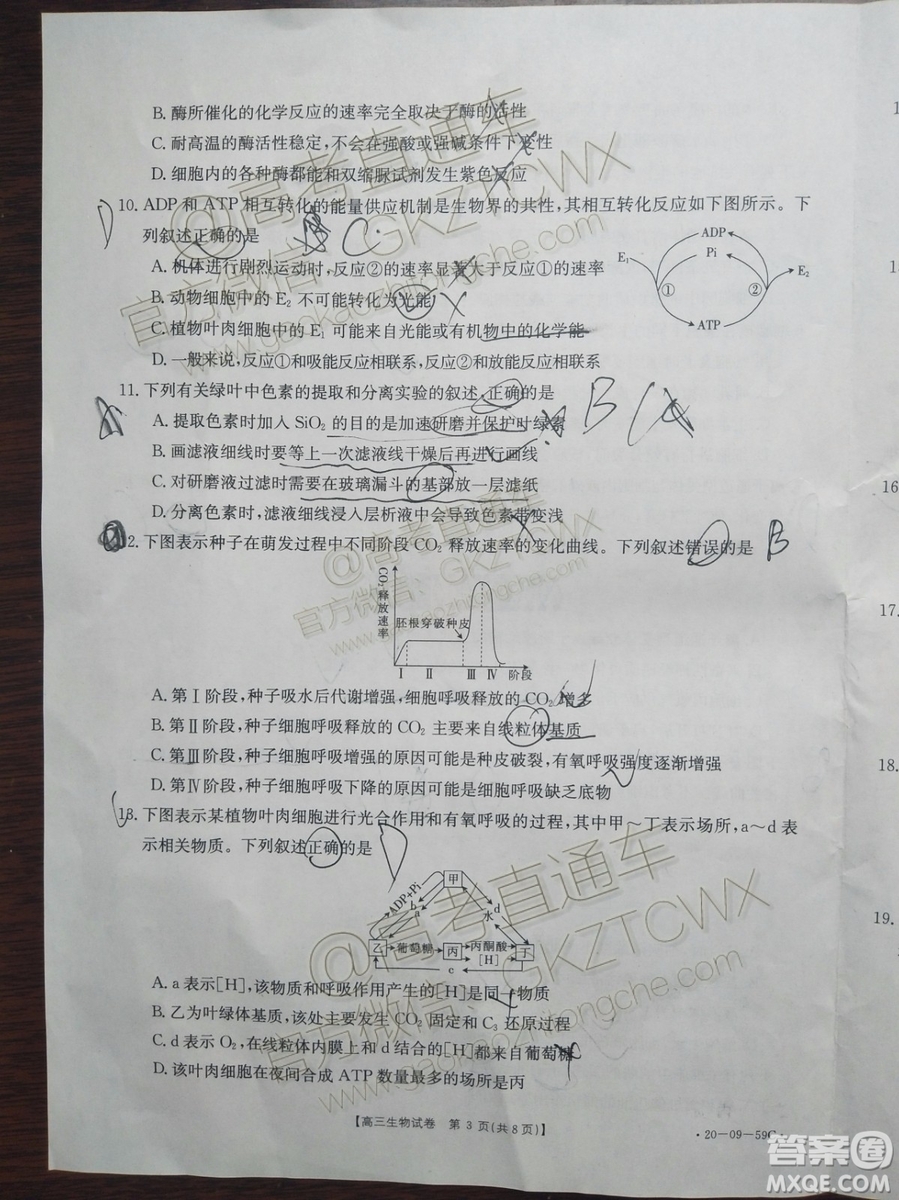 B. 酶所催化的化学反应的速率完全取决于酶的活性
C. 耐高温的酶活性稳定，不会在强酸或强碱条件下变性
D. 细胞内的各种酶都能和双缩脲试剂发生紫色反应
10. ADP 和 ATP 相互转化的能量供应机制是生物界的共性，其相互转化反应如下图所示。下
列叙述正确的是
C
ADP
Pi
E₁
E₂
①
②
ATP
A. 机体进行剧烈运动时，反应②的速率显著大于反应①的速率
B. 动物细胞中的 E₂ 不可能转化为光能
C. 植物叶肉细胞中的 E₁ 可能来自光能或有机物中的化学能
D. 一般来说，反应①和吸能反应相联系，反应②和放能反应相联系
11. 下列有关绿叶中色素的提取和分离实验的叙述，正确的是
B
A. 提取色素时加入 SiO₂ 的目的是加速研磨并保护叶绿素
B. 画滤液细线时要等上一次滤液线干燥后再进行画线
C. 对研磨液过滤时需要在玻璃漏斗的基部放一层滤纸
D. 分离色素时，滤液细线浸入层析液中会导致色素带变浅
12. 下图表示种子在萌发过程中不同阶段 CO₂ 释放速率的变化曲线。下列叙述错误的是
B
CO₂释放速率
胚根穿破种皮
Ⅰ Ⅱ Ⅲ Ⅳ 阶段
A. 第Ⅰ阶段，种子吸水后代谢增强，细胞呼吸释放的 CO₂ 增多
B. 第Ⅱ阶段，种子细胞呼吸释放的 CO₂ 主要来自线粒体基质
C. 第Ⅲ阶段，种子细胞呼吸增强的原因可能是种皮破裂，有氧呼吸强度逐渐增强
D. 第Ⅳ阶段，种子细胞呼吸下降的原因可能是细胞呼吸缺乏底物
13. 下图表示某植物叶肉细胞进行光合作用和有氧呼吸的过程，其中甲～丁表示场所，a～d 表
示相关物质。下列叙述正确的是
D
甲
ADP+Pi
b
a
d
水
乙 葡萄糖 丙 丙酮酸 丁
[H]
c
A. a 表示[H]，该物质和呼吸作用产生的[H]是同一物质
B. 乙为叶绿体基质，该处主要发生 CO₂ 固定和 C₃ 还原过程
C. d 表示 O₂，在线粒体内膜上和 d 结合的[H]都来自葡萄糖
D. 该叶肉细胞在夜间合成 ATP 数量最多的场所是丙
【高三生物试卷 第 3 页(共 8 页)】
·20-09-59C·
1
15
16
17.
18.
19.
@高考直通车
官方微信：GKZTCWX
www.gaokaozhitongche.com
@高考直通车
官方微信：GKZTCWX
www.gaokaozhitongche.com
@高考直通车
官方微信：GKZTCWX
www.gaokaozhitongche.com
答案卷
MXQE.COM